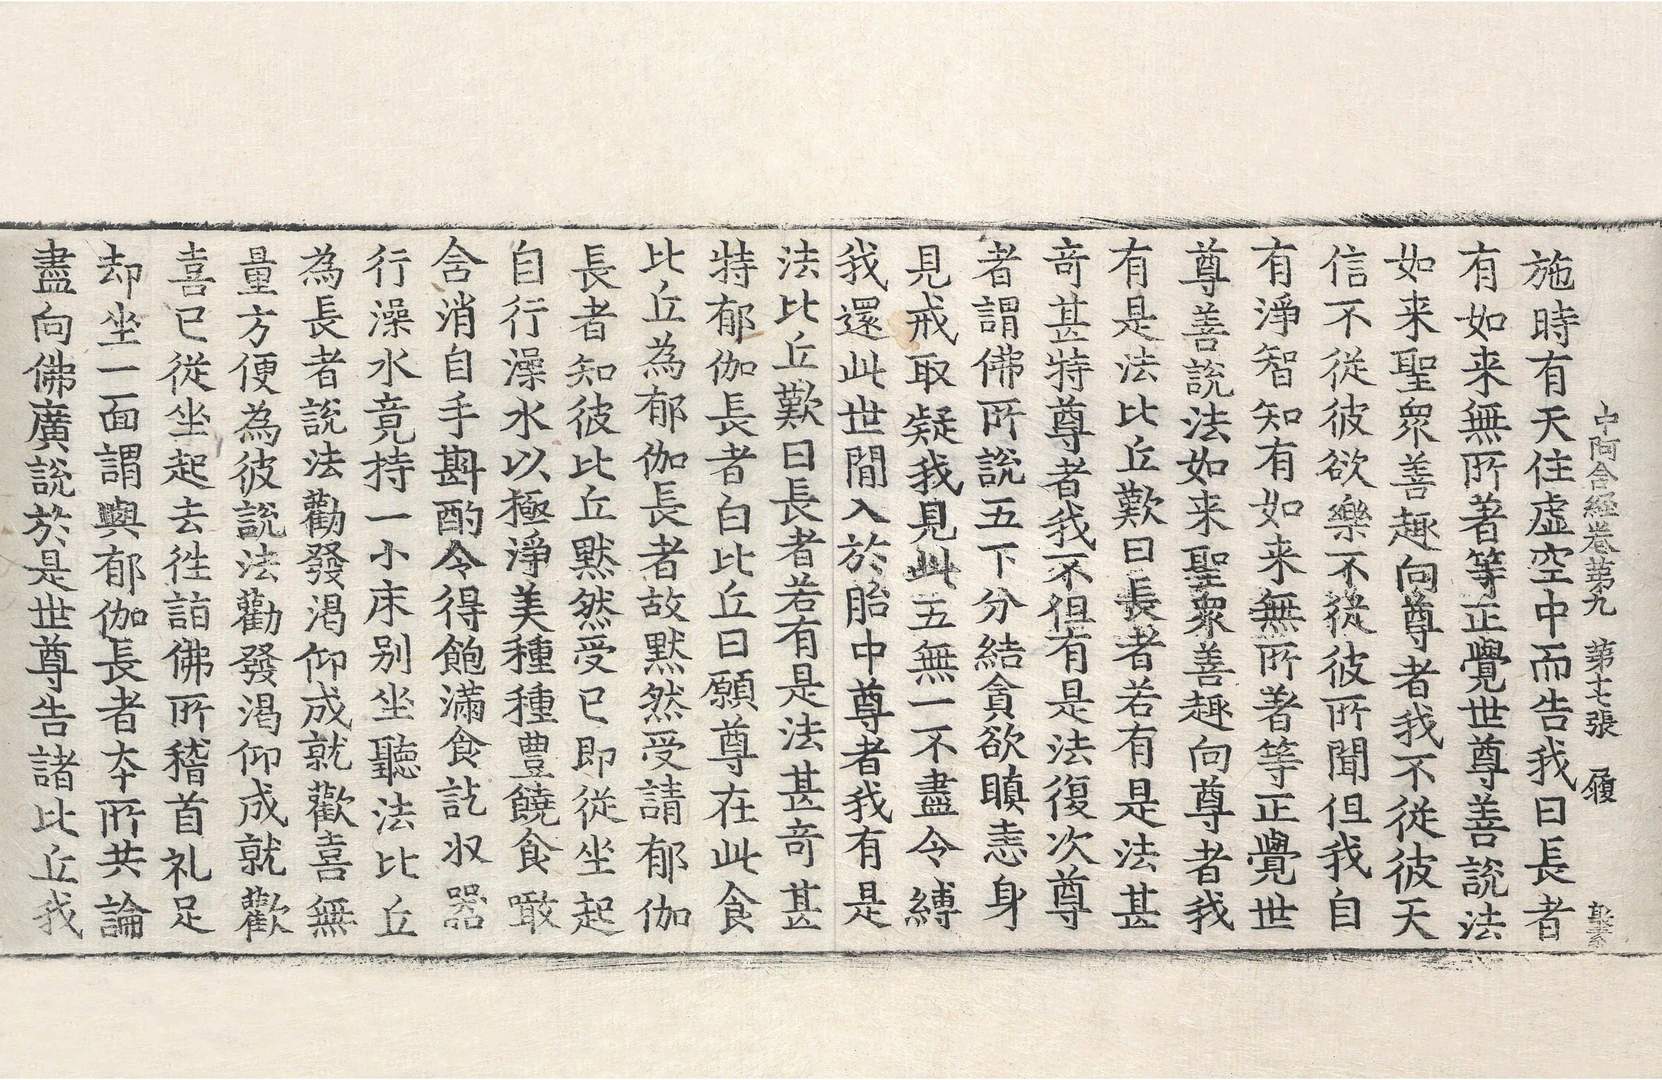 中阿含経卷第九　第十七張　履
施時有天住虛空中而告我曰長者
有如来無所著等正覺世尊善說法
如来聖衆善趣向尊者我不從彼天
信不從彼欲樂不從彼所聞但我自
有淨智知有如来無所著等正覺世
尊善說法如来聖衆善趣向尊者我
有是法比丘歎曰長者若有是法甚
奇甚特尊者我不但有是法復次尊
者謂佛所說五下分結貪欲瞋恚身
見戒取疑我見此五無一不盡令縛
我還此世間入於胎中尊者我有是
法比丘歎曰長者若有是法甚奇甚
特郁伽長者白比丘曰願尊在此食
比丘為郁伽長者故黙然受請郁伽
長者知彼比丘黙然受已即從坐起
自行澡水以極淨美種種豊饒食噉
含消自手斟酌令得飽滿食訖収器
行澡水竟持一小床别坐聽法比丘
為長者說法勸發渇仰成就歡喜無
量方便為彼說法勸發渇仰成就歡
喜已從坐起去徃詣佛所稽首礼足
却坐一面謂與郁伽長者夲所共論
盡向佛廣說於是世尊告諸比丘我